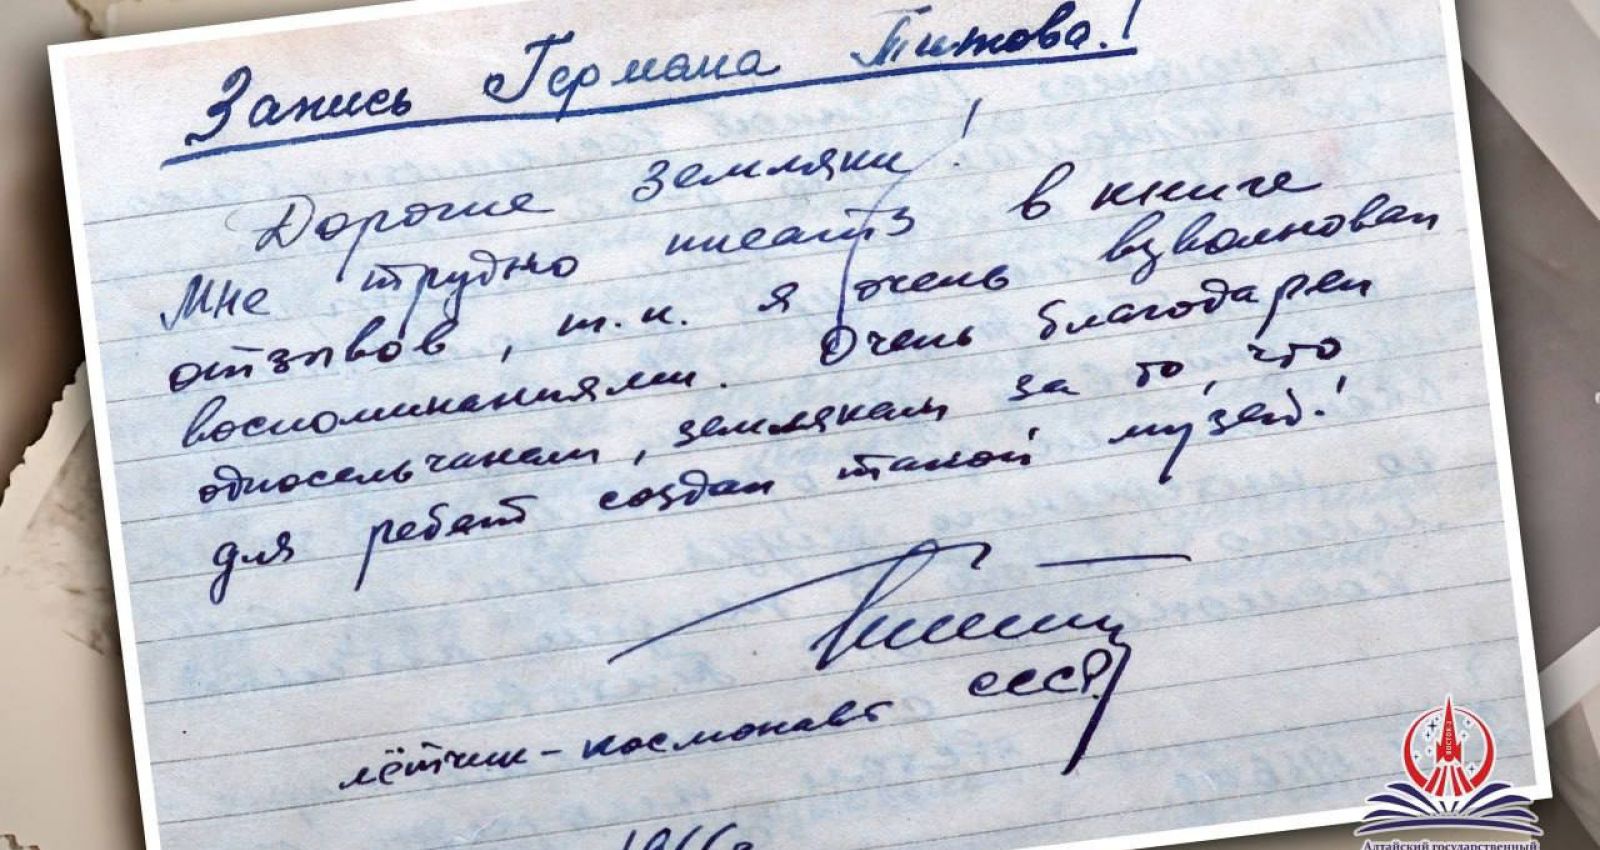 Запись Германа Титова.!
Дорогие земляки!
Мне трудно писать в книге
отзывов, т.к. я очень взволнован
воспоминаниями. Очень благодарен
односельчанам, землякам за то, что
для ребят создан такой музей.!
лётчик-космонавт СССР.
ВОСТОК-2
Алтайский государственный